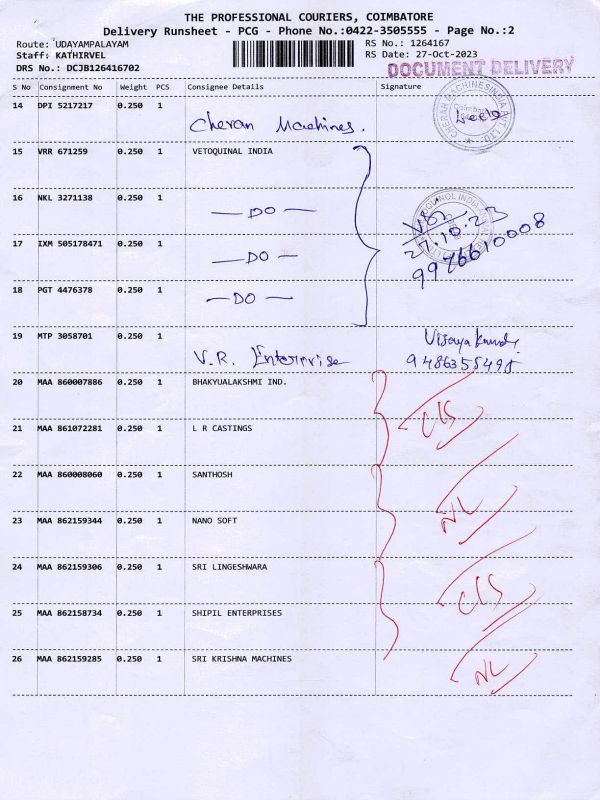 THE PROFESSIONAL COURIERS, COIMBATORE
Delivery Runsheet - PCG - Phone No.:0422-3505555 - Page No.:2
Route: UDAYAMPALAYAM RS No.: 1264167
Staff: KATHIRVEL RS Date: 27-Oct-2023
DRS No.: DCJB126416702 DOCUMENT DELIVERY
S No Consignment No Weight PCS Consignee Details Signature
14 DPI 5217217 0.250 1
Cheran Machines.
15 VRR 671259 0.250 1 VETOQUINAL INDIA
16 NKL 3271138 0.250 1
— DO —
27.10.23
17 IXM 505178471 0.250 1
— DO — 9976610008
18 PGT 4476378 0.250 1
— DO —
19 MTP 3058701 0.250 1
V.R. Enterprise 9486355495
20 MAA 860007886 0.250 1 BHAKYUALAKSHMI IND.
CLS
21 MAA 861072281 0.250 1 L R CASTINGS
22 MAA 860008060 0.250 1 SANTHOSH
NL
23 MAA 862159344 0.250 1 NANO SOFT
24 MAA 862159306 0.250 1 SRI LINGESHWARA
CLS
25 MAA 862158734 0.250 1 SHIPIL ENTERPRISES
26 MAA 862159285 0.250 1 SRI KRISHNA MACHINES
NL